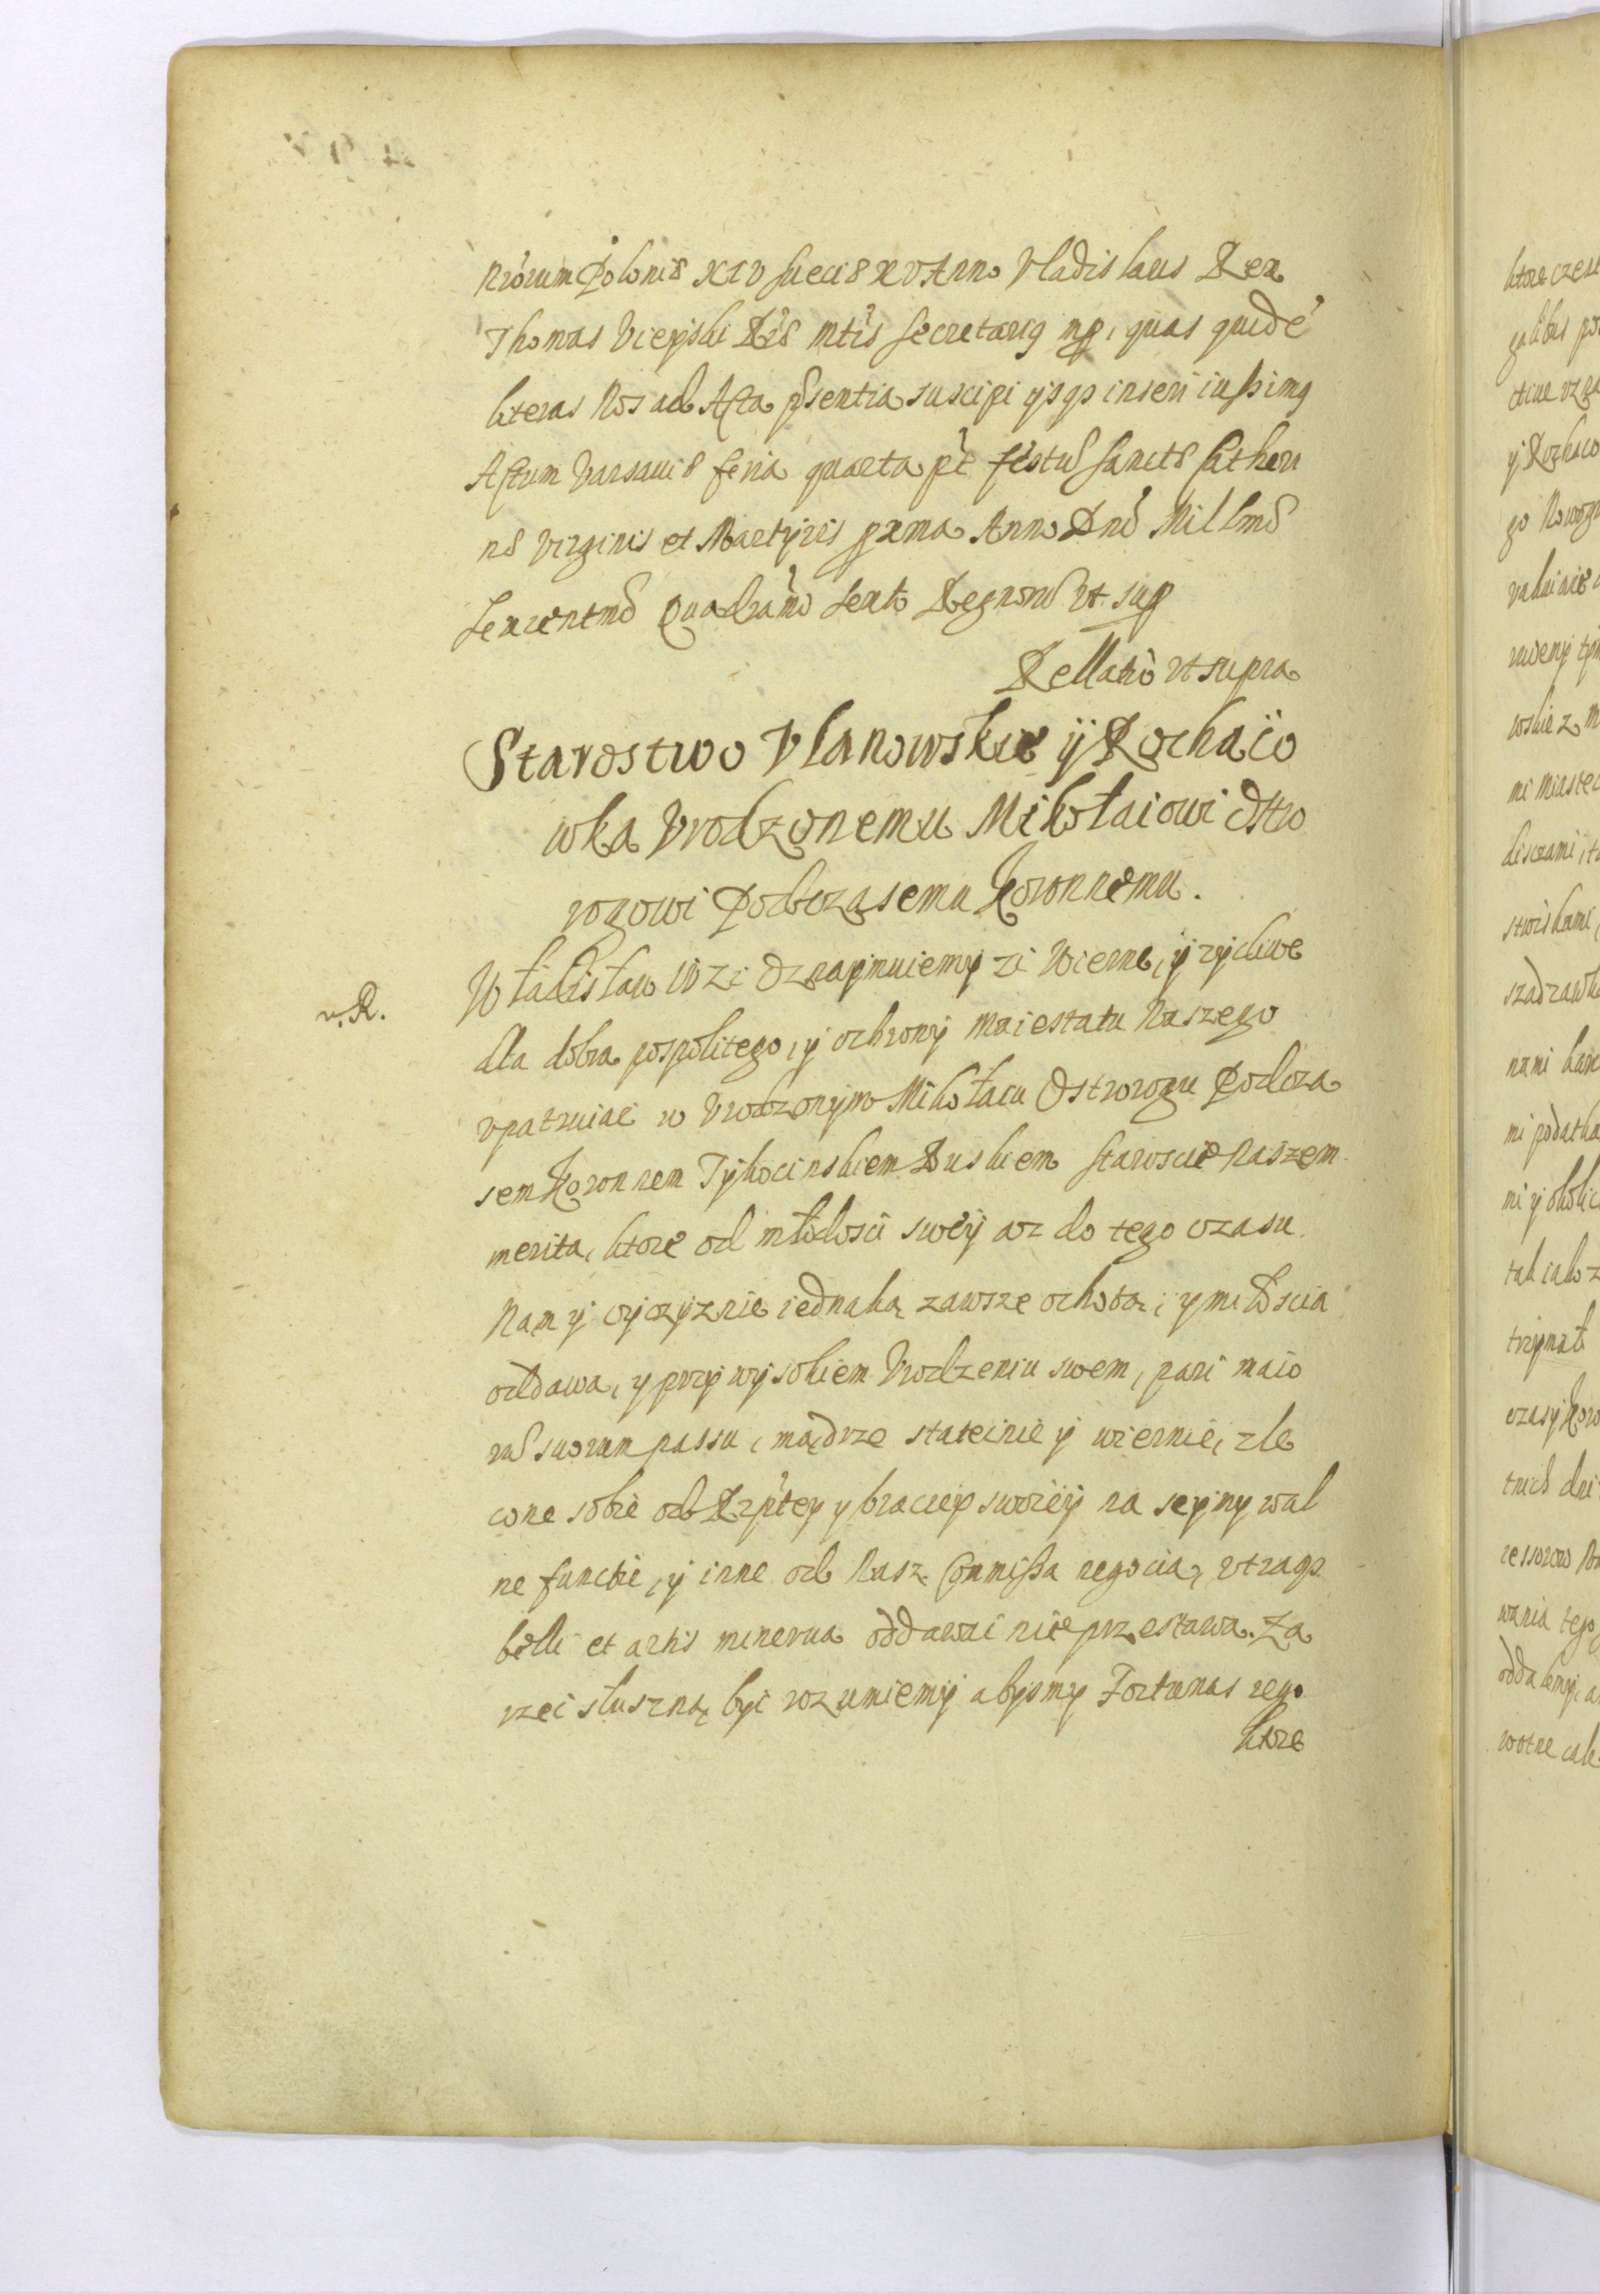 Nrorum Poloniæ XIV Sueciæ XV Anno Vladislaus Rex
Thomas Vieyski Ræ Mtis Secretarig mp, quas quidé
literas Nos ad Acta pñsentia suscipi ijsqs inseri iussimg
Actum Varsauiæ feria quarta pt festū sanctæ Catheri
næ Virginis et Martyris pxma Anno Dnō Millmō
Sexcentmō Quadramō sexto Regnorū vt sup
Rellatio vt supra
Starostwo Vlanowskie ÿ Rochaïo
wka Vrodzonemu Mikołaiowi Ostro
rogowi Podczasemu Koronnemu.
v. R.
Władisław IV Zi Oznaymuiemy zi Wierne, y zycliwe
dla dobra pospolitego, y ochrony Maiestatu Naszego
vpatruiac w Vrodzonym Mikołaiu Ostrorogu Podcza
sem Koronnem Tykocinskiem Ruskiem Staroscie Naszem
merita, ktore od młodosci swey az do tego czasu
Nam y oyczyznie iednaką zawsze ochotą, y miłoscia
oddawa, y przy wysokiem Vrodzeniu swem, pari maio
rū suorum passu, mądrze stateinie y wiernie, zle
cone sobie od Rzptey y braciey swoieÿ na seymy wal
ne functie, y inne od Nasz Commissa negocia, vtraqs
belli et artis minerua oddawai nie przestawa. Za
rzei słuszną byi rozumiemy abysmy Fortunas rego
ktore